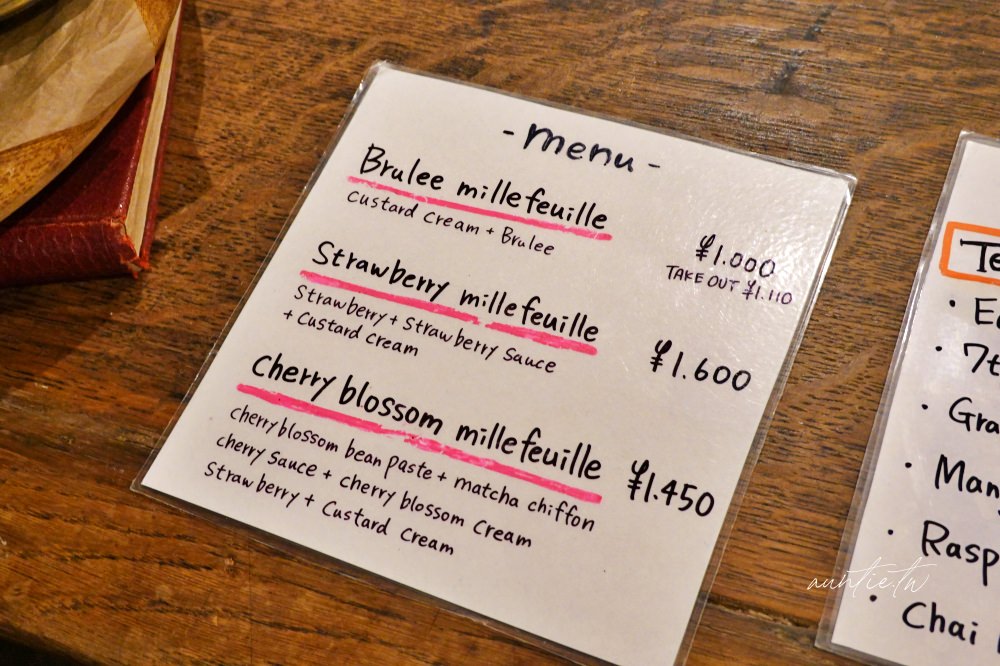 - menu -
Brulee millefeuille
custard cream + Brulee
¥1.000
TAKE OUT ¥1.110
Strawberry millefeuille
Strawberry + Strawberry sauce
+ custard cream
¥1.600
Cherry blossom millefeuille
cherry blossom bean paste + matcha chiffon
cherry sauce + cherry blossom cream
strawberry + custard cream
¥1.450
Te
· Ea
· 7t
· Gra
· Man
· Rasp
· Chai
auntie.tw